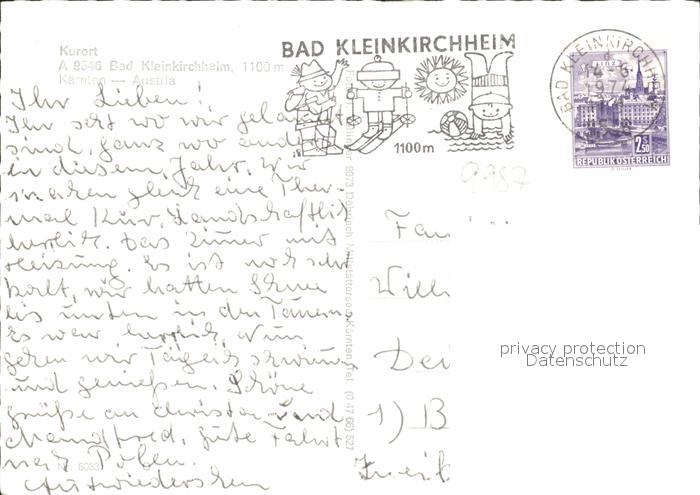 Kurort
A 9546 Bad Kleinkirchheim, 1100 m
Kärnten — Austria
BAD KLEINKIRCHHEIM
1100m
BAD KLEINKIRCHHEIM
1974
LINZ
2.50
REPUBLIK ÖSTERREICH
9987
Ihr Lieben!
Ihr seht wo wir gelandet
sind, ganz wo anders
in diesem Jahr. Wir
machen gleich eine Ther-
mal Kur. Landschaftlich
herrlich. Das Zimmer mit
Heizung. Es ist noch sehr
kalt, wir hatten Schnee
bis unten in den Tauern
Es war herrlich. Nun
gehen wir täglich schwimmen
und genießen. Schöne
Grüße an Christa und
Manfred, gute Fahrt
nach Polen.
Aufwiedersehen
Nr. 6083
Fam
Will
Dei
1) B
privacy protection
Datenschutz